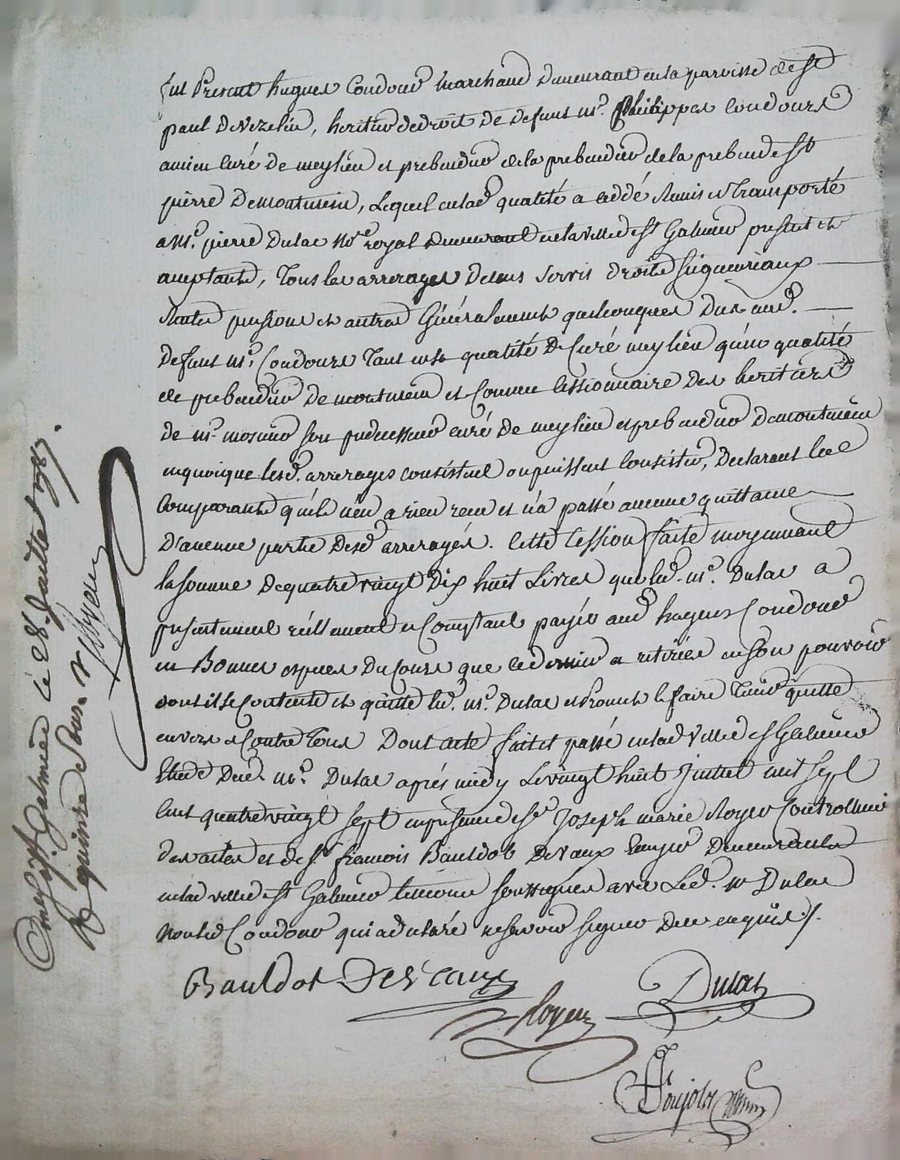 fut Present hugues Coudour marchand demeurant en la parroisse de St
paul de Vezelin, heritier de droit de defunt mr. Philippes Coudours
ancien curé de meylieu et prebendier de la prebendier de la prebende St
pierre de montmein, Lequel en lad qualité a cédé Remis et transporté
a Mr. pierre Dulac Nre royal demeurant en la ville de St Galmier present et
acceptant, Tous les arrerages de cens servis droits seigneuriaux
pensions et autres Généralement quelconques dus aud.
defunt mr. Coudours tant en sa qualité de Curé meylieu qu'en qualité
de prebendier de montmein et comme cessionnaire des heritiers
de mr. mosnier son predecesseur curé de meylieu et prebendier de montmein
en quoique lesd. arrerages consistent ou puissent consister, declarant led
Comparant qu'il n'en a rien reçu et n'a passé aucune quittance
d'aucune partie desd arrerages. Cette Cession faite moyennant
la somme de quatre vingt dix huit Livres que led. mr. Dulac a
presentement réellement et Comptant payée aud hugues Coudour
en Bonnes especes du Cours que ce dernier a retirées en son pouvoir
dont il se Contente et quitte led. mr. Dulac et Promet le faire tenir quitte
envers et Contre tous Dont acte fait et passé en lad ville de St Galmier
Etude dud. mr. Dulac après midy Le vingt huit Juillet mil sept
cent quatre vingt sept en presence de sr Joseph marie Royer Controlleur
des actes et de Sr. francois Bauldot Devaux demeurants
en lad ville de St Galmier temoins soussignés avec Led. mr Dulac
non led Coudour qui a declaré ne savoir signer de ce enquis ./.
Bauldot Devaux
Dulac
Royer
Coné à St. Galmier le 28. Juillet 1787.
R quinze sous.
Royer